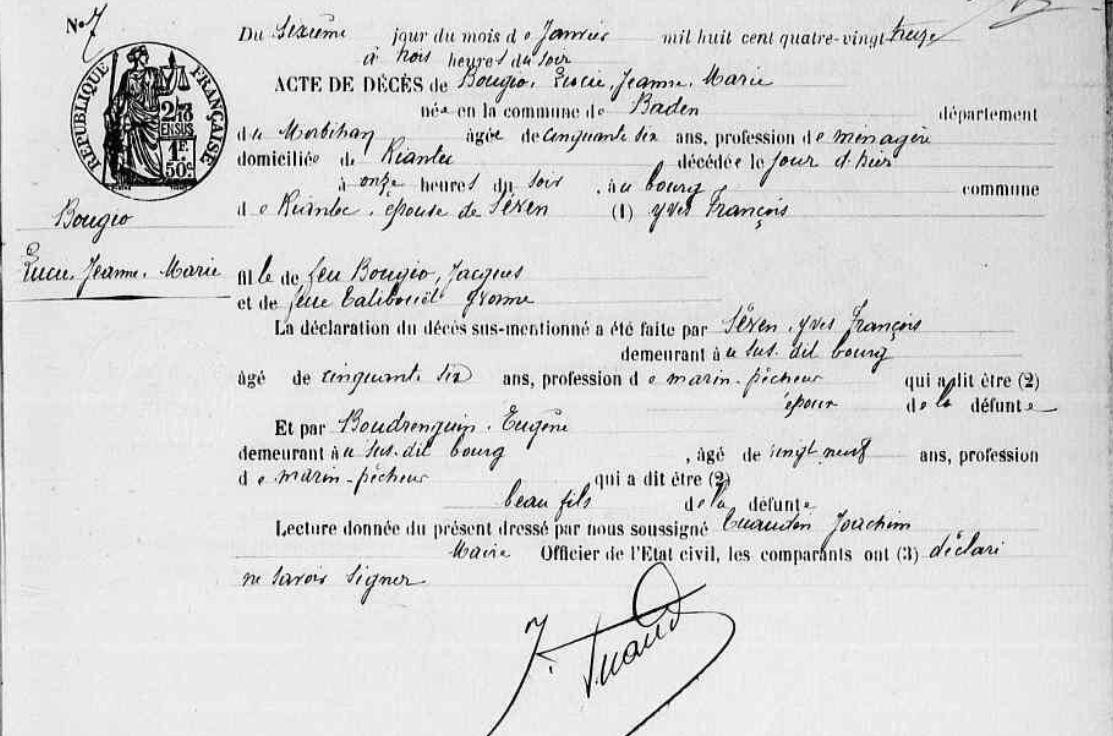 N° 7
Du Sixième jour du mois de Janvier mil huit cent quatre-vingt treize
à trois heures du soir
ACTE DE DÉCÈS de Bougio, Lucie, Jeanne, Marie
née en la commune de Baden département
du Morbihan âgée de cinquante six ans, profession de ménagère
domiciliée de Riantec décédée le jour d'hier
à onze heures du soir, au bourg commune
de Riantec, épouse de Séven (1) Yves François
RÉPUBLIQUE FRANÇAISE
2/10
EN SUS
1F.
50c.
Bougio
Lucie, Jeanne, Marie
fille de feu Bougio, Jacques
et de feue Yvonne
La déclaration du décès sus-mentionné a été faite par Séven, Yves François
demeurant au sus-dit bourg
âgé de cinquante six ans, profession de marin-pêcheur qui a dit être (2)
époux de la défunte
Et par Eugène
demeurant au sus-dit bourg, âgé de vingt neuf ans, profession
de marin-pêcheur qui a dit être (2)
beau fils de la défunte
Lecture donnée du présent dressé par nous soussigné Joachim
Maire Officier de l'Etat civil, les comparants ont (3) déclaré
ne savoir signer